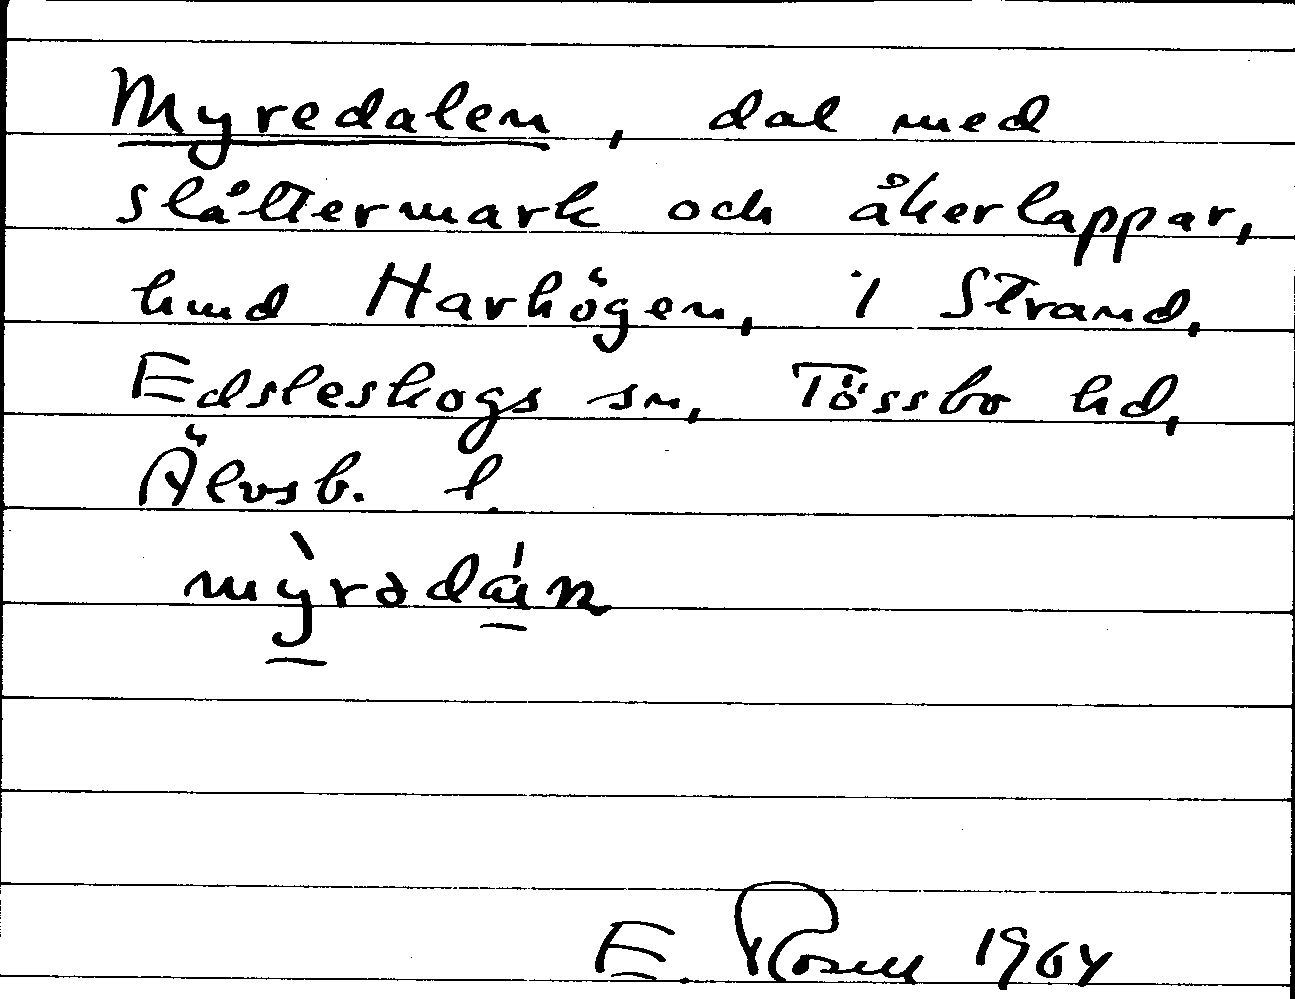 Myredalen, dal med
slåttermark och åkerlappar,
hmd Harhögen, i Strand,
Edsleskogs sn, Tössbo hd,
Älvsb. l.
mỳrədán
E. Rosell 1964